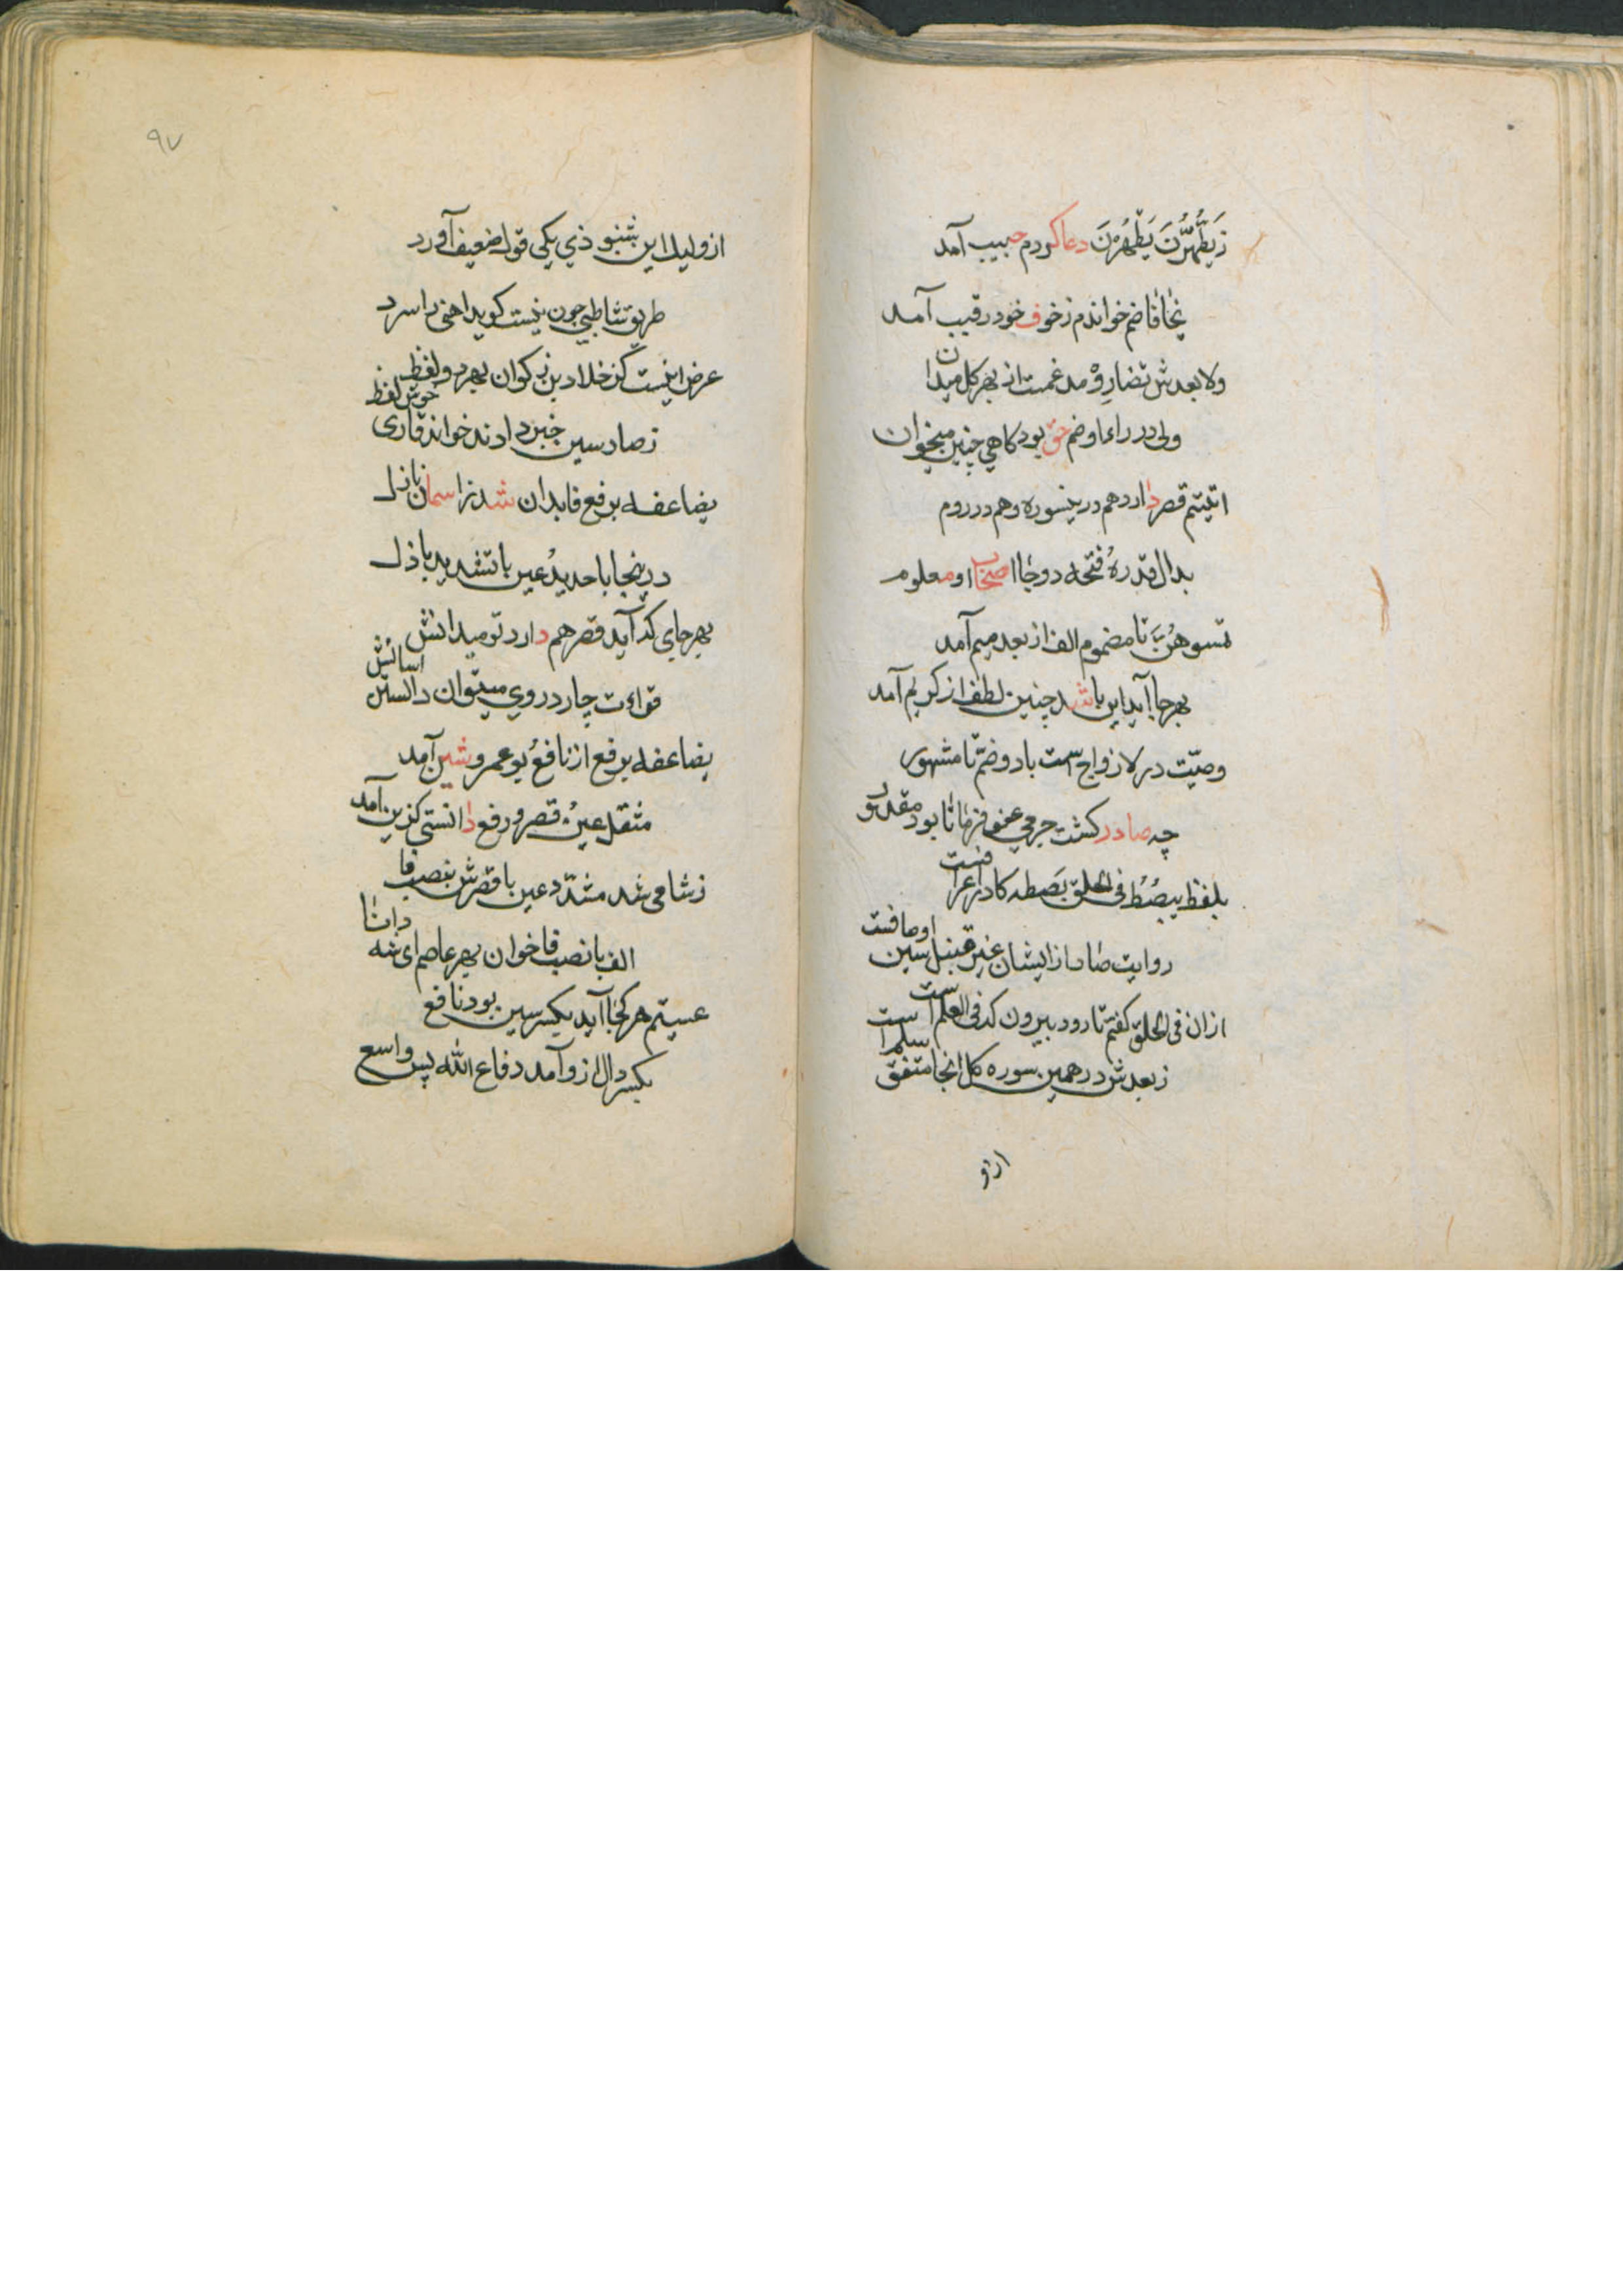 زیطَّهَّرْنَ یَطْهُرْنَ دعا کردم حبیب آمد
یخافا ضم خواندم زخوف خود رقیب آمد
ولا بعدش تضارِرْ مدغمت از بهر کل میدان
ولی در راء او ضم حق بود کاهی چنین میخوان
اتیتم قصر دارد هم درینسوره و هم در روم
بدال قدره فتحه دو جا اصحاب او معلوم
تمسوهن بتا مضموم الف از بعد میم آمد
بهر جا آید این باشد چنین لطف از کریم آمد
وصیّت در لازواج است باد و ضمّ تا مشهور
چه صادر کشت جرمی عفو فرمانا بود مقدور
بلفظ یبصُطُ فی الخلق بَصطه کادر اعرافست
روایت صاد از ایشان غیر قنبل سین اوصافست
ازان فی الخلق کفتم تا رود بیرون که فی العلم است
زبعدش در همین سوره کل انجا متفق سلم است
ازو
۹۷
از ولید این بشنو ذی یکی قول ضعیف آورد
طریق شاطبی چون نیست کوید اهنی را سرد
عرض اینست کز خلاد بن ذکوان بهر دو لفظ
زصاد سین خبر دادند خواند قاری خوش لفظ
یضاعفه برفع فا بدان شد ز اسمان نازل
درینجا با حدید عین با تشدید باذل
بهر جای که آید قصر هم دارد تو میدانش
قراءت چار در وی میتوان دانستن اسانش
یضاعفه برفع از نافع بو عمرو شین آمد
مثقل عین قصر و رفع دانستی کزین آمد
زشامی شد مشدّد عین با قصرش بنصب فا
الف با نصب فا خوان بهر عاصم ای شه دانا
عسیتم هر کجا آید بکسر سین بود نافع
بکسر دال ازو آمد دفاع الله پس واسع